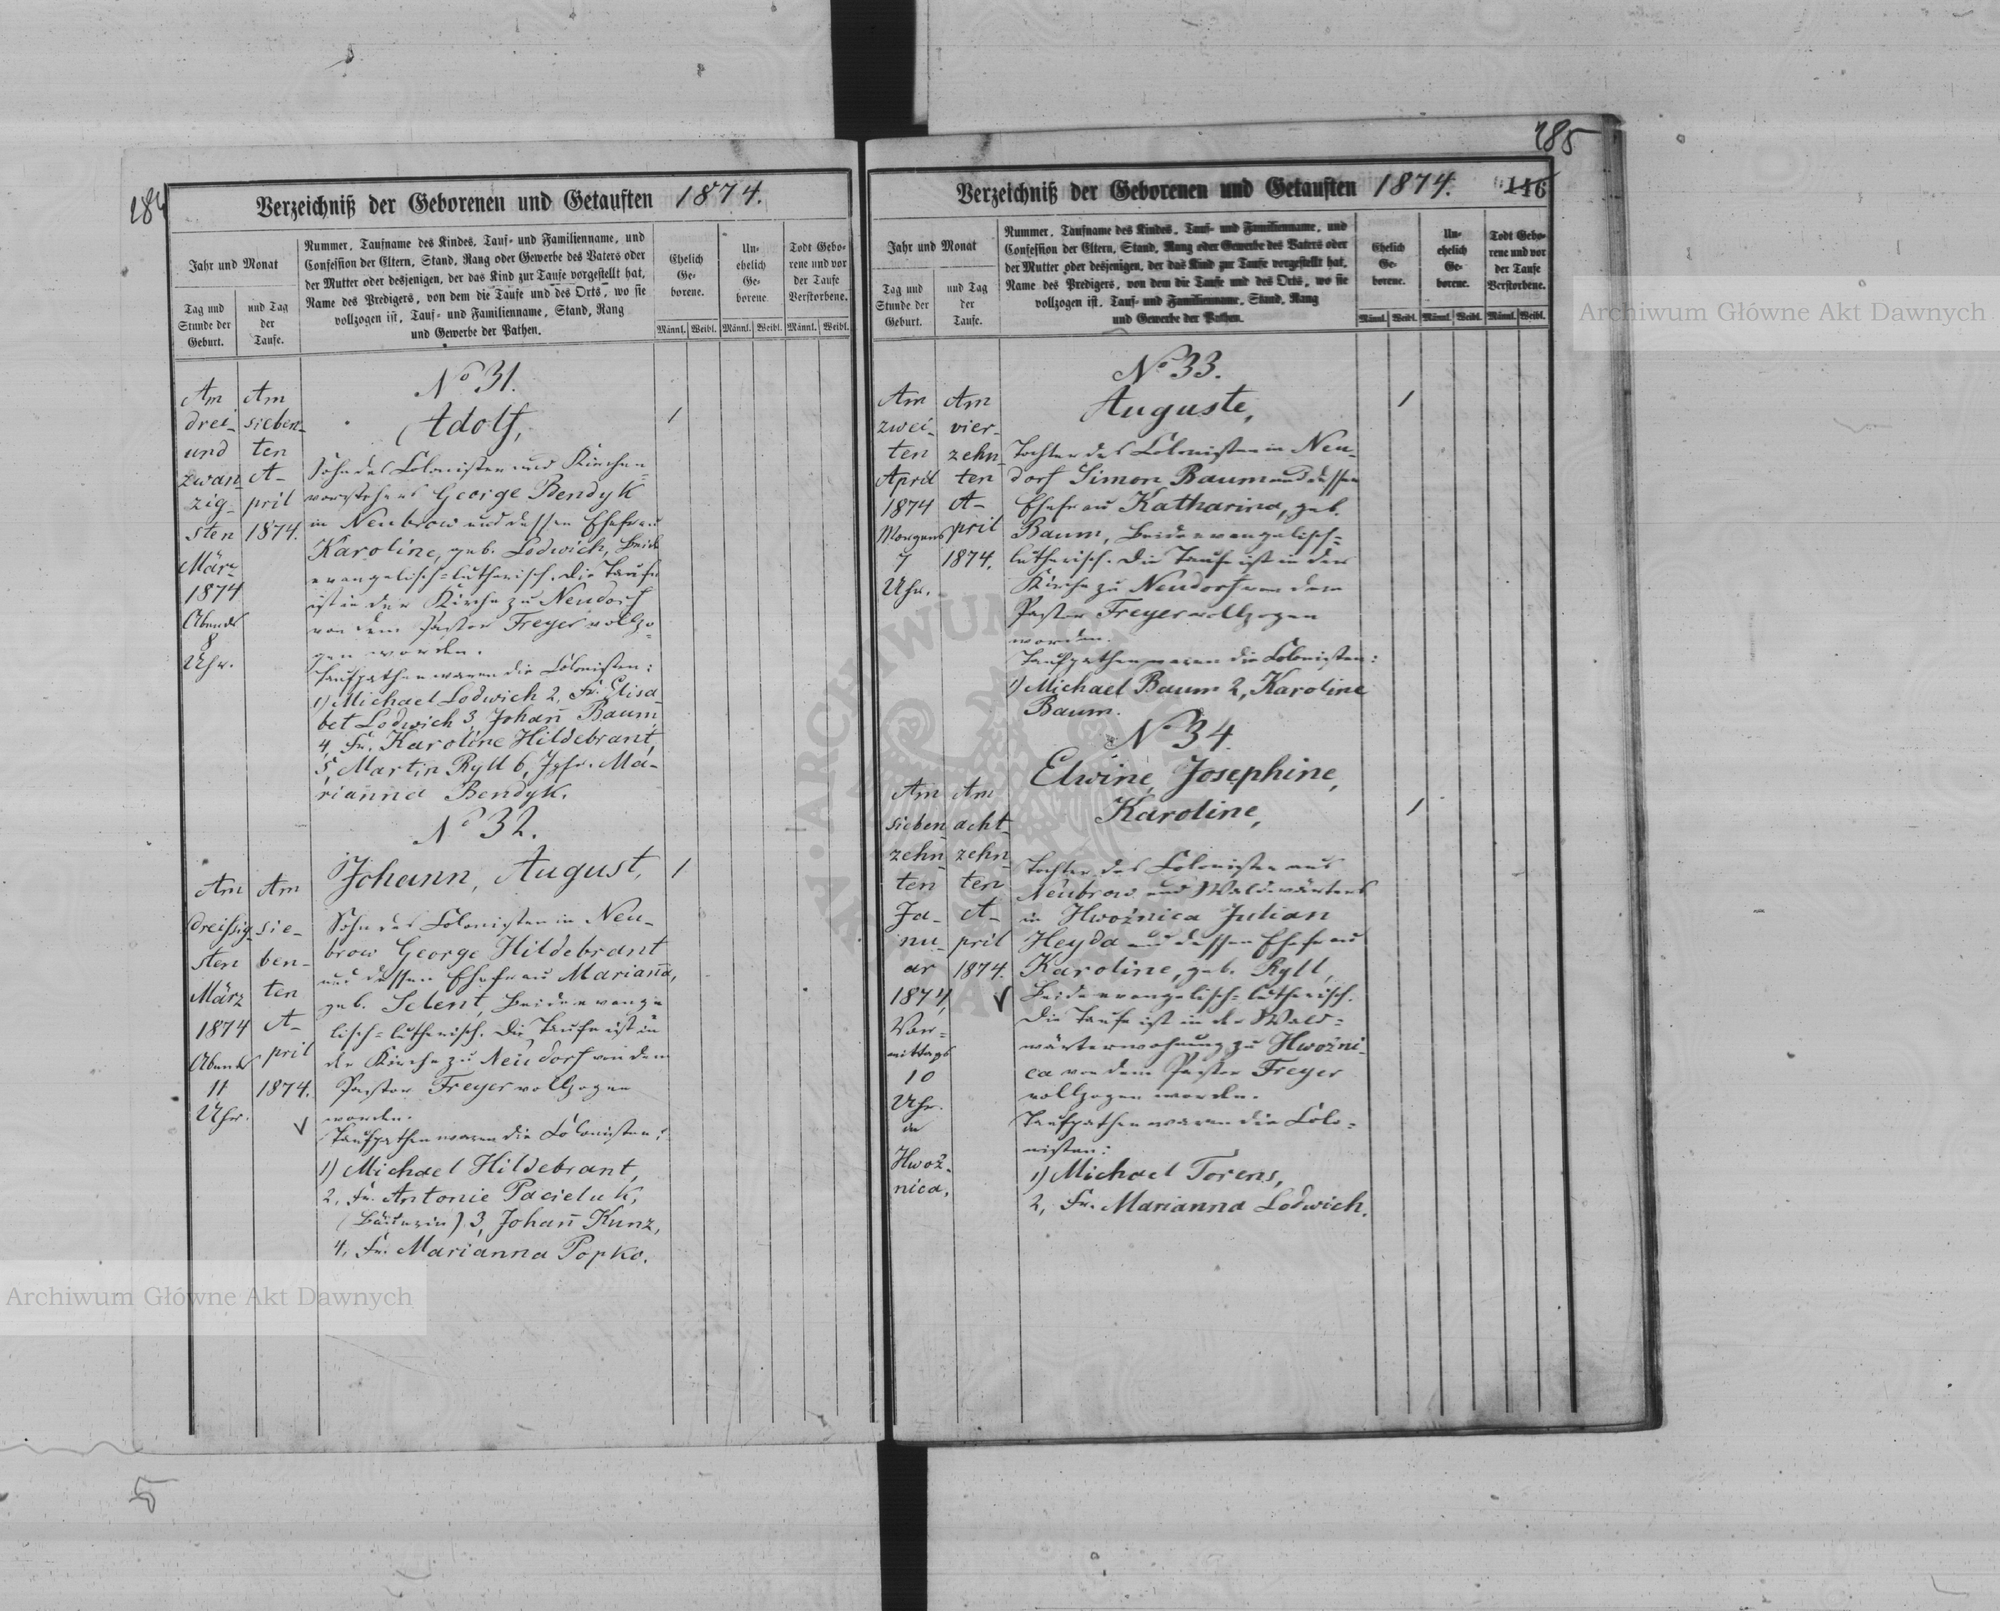 284
Verzeichniß der Geborenen und Getauften 1874.
Jahr und Monat
Tag und
Stunde der
Geburt.
und Tag
der
Taufe.
Nummer, Taufname des Kindes, Tauf- und Familienname, und
Confession der Eltern, Stand, Rang oder Gewerbe des Vaters oder
der Mutter oder desjenigen, der das Kind zur Taufe vorgestellt hat,
Name des Predigers, von dem die Taufe und des Orts, wo sie
vollzogen ist, Tauf- und Familienname, Stand, Rang
und Gewerbe der Pathen.
Ehelich
Ge-
borene.
Un-
ehelich
Ge-
borene.
Todt Gebo-
rene und vor
der Taufe
Verstorbene.
Männl. Weibl. Männl. Weibl. Männl. Weibl.
Am
drei-
und
zwan-
zig-
sten
März
1874
Abends
8
Uhr.
Am
sieben-
ten
A-
pril
1874.
No 31.
Adolf,
1
Sohn des Colonisten und Kirchen-
vorstehers George Bendyk
in Neubrow und dessen Ehefrau
Karoline, geb. Lodwich, Beide
evangelisch-lutherisch. Die Taufe
ist in der Kirche zu Neudorf
von dem Pastor Freyer vollzo-
gen worden.
Taufpathen waren die Colonisten:
1) Michael Lodwich 2, Fr. Elisa-
bet Lodwich 3, Johañ Baum,
4, Fr. Karoline Hildebrant,
5, Martin Ryll 6, Jgfr. Ma-
rianna Bendyk.
Am
dreißig-
sten
März
1874
Abends
11
Uhr.
Am
sie-
ben-
ten
A-
pril
1874.
No 32.
Johann, August,
1
Sohn des Colonisten in Neu-
brow George Hildebrant
und dessen Ehefrau Mariaña,
geb. Selent, Beide evange-
lisch-lutherisch. Die Taufe ist in
der Kirche zu Neudorf von dem
Pastor Freyer vollzogen
worden.
Taufpathen waren die Colonisten:
1) Michael Hildebrant,
2, Fr. Antonie Pacieluk,
(Bäuerin) 3, Johañ Kunz,
4, Fr. Marianna Popko.
285
Verzeichniß der Geborenen und Getauften 1874.
116
Jahr und Monat
Tag und
Stunde der
Geburt.
und Tag
der
Taufe.
Nummer, Taufname des Kindes, Tauf- und Familienname, und
Confession der Eltern, Stand, Rang oder Gewerbe des Vaters oder
der Mutter oder desjenigen, der das Kind zur Taufe vorgestellt hat,
Name des Predigers, von dem die Taufe und des Orts, wo sie
vollzogen ist, Tauf- und Familienname, Stand, Rang
und Gewerbe der Pathen.
Ehelich
Ge-
borene.
Un-
ehelich
Ge-
borene.
Todt Gebo-
rene und vor
der Taufe
Verstorbene.
Männl. Weibl. Männl. Weibl. Männl. Weibl.
Am
zwei-
ten
April
1874
Morgens
7
Uhr.
Am
vier-
zehn-
ten
A-
pril
1874.
No 33.
Auguste,
1
Tochter des Colonisten in Neu-
dorf Simon Baum und dessen
Ehefrau Katharina, geb.
Baum, Beide evangelisch-
lutherisch. Die Taufe ist in der
Kirche zu Neudorf von dem
Pastor Freyer vollzogen
worden.
Taufpathen waren die Colonisten:
1) Michael Baum 2, Karoline
Baum.
Am
sieben-
zehn-
ten
Ja-
nu-
ar
1874,
Vor-
mittags
10
Uhr.
in
Hwoż-
nica.
Am
acht-
zehn-
ten
A-
pril
1874.
No 34.
Elwine, Josephine,
Karoline,
1
Tochter des Colonisten aus
Neubrow und Waldwärters
in Hwoźnica Julian
Heyda und dessen Ehefrau
Karoline, geb. Ryll,
Beide evangelisch-lutherisch.
Die Taufe ist in der Wald-
wärterwohnung zu Hwoźni-
ca von dem Pastor Freyer
vollzogen worden.
Taufpathen waren die Colo-
nisten:
1) Michael Torens,
2, Fr. Marianna Lodwich.
Archiwum Główne Akt Dawnych
Archiwum Główne Akt Dawnych